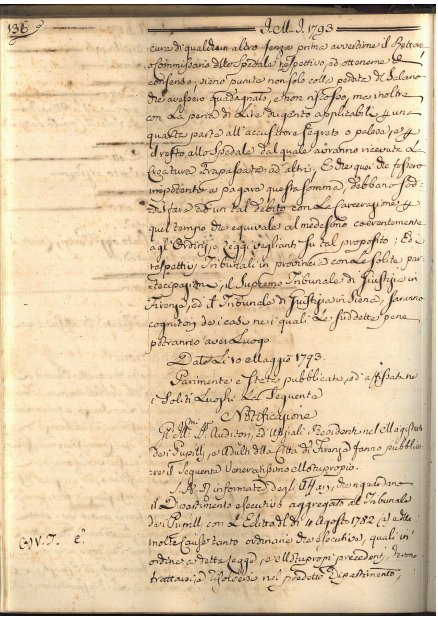 136
I.M.I. 1793
cura di qualch'un altro senza prima avvertirne il Rettore
o Commissario dello Spedale respettivo, ed ottenerne il
consenso, sieno punite non solo colla perdita del Salario
che avessero guadagnato, e non riscosso, ma inoltre
con la pena di Lire dugento applicabili p una
quarta parte all'accusatore segreto o palese, e p
il resto allo Spedale dal quale avranno ricevute le
Creature trapassate ad altri; E che quei che fossero
impotenti a pagare questa somma, debbano sod-
disfare ad un tal debito con la Carcerazione p
quel tempo che equivale al medesimo coerentemente
agl'Ordini, e Leggi veglianti su tal proposito; Ed i
respettivi Tribunali in provincia con le solite par-
tecipazioni, il Supremo Tribunale di Giustizia in
Firenze, ed il Tribunale di Giustizia in Siena, saranno
cognitori dei casi nei quali le suddette pene
potranno aver Luogo.
Dato Li 10 Maggio 1793.
Parimente è stata pubblicata, ed affissata ne
i Soliti Luoghi La Seguente
Notificazione
Gl'Ill.mi SS. Auditori, ed Ufiziali Presidenti nel Magistrato
dei Pupilli, e Adulti della Città di Firenze fanno pubblic-
are il Seguente Veneratissimo Motuproprio.
S.A.R. informata degli Affari, che riguardano
il Dipartimento esecutivo aggregato al Tribunale
dei Pupilli con l'Editto del di 4 Agosto 1782 (a) e delle
molte Cause tanto ordinarie che esecutive, quali in
ordine a detta Legge, e Motuproprj precedenti, devono
trattarsi, e risolversi nel predetto Dipartimento,
(a) V. T.